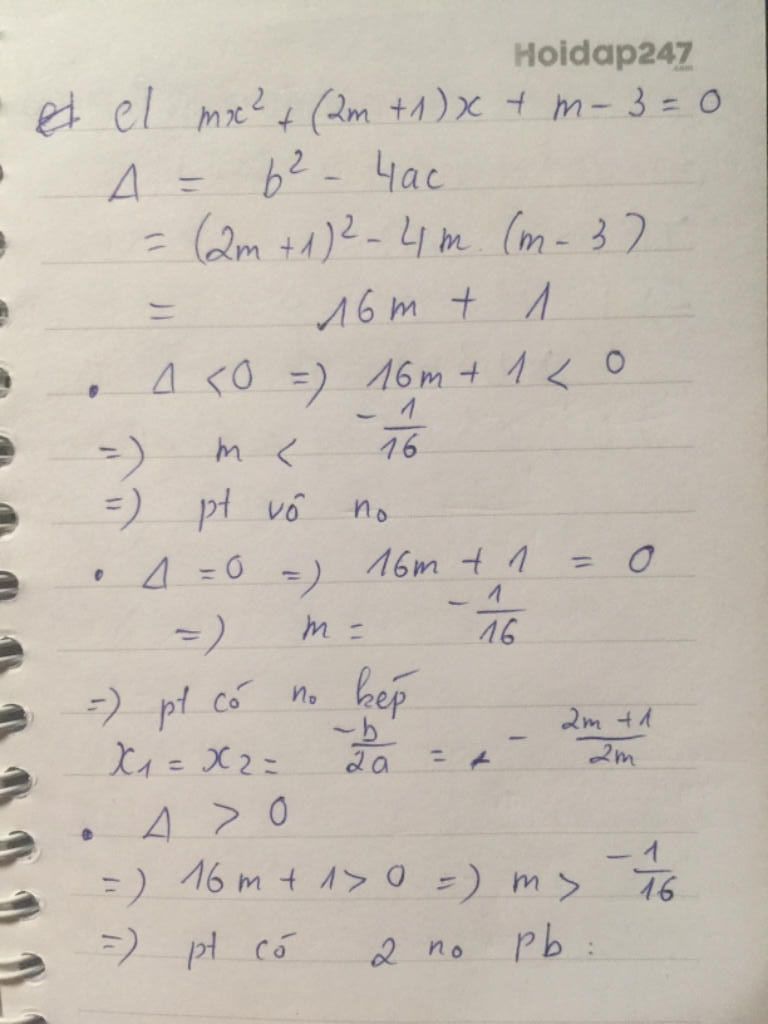 Hoidap247
.com
e) mx² + (2m + 1)x + m - 3 = 0
Δ = b² - 4ac
= (2m + 1)² - 4m. (m - 3)
= 16m + 1
• Δ < 0 => 16m + 1 < 0
=> m < -1/16
=> pt vô no
• Δ = 0 => 16m + 1 = 0
=> m = -1/16
=> pt có no kép
x₁ = x₂ = -b/2a = - 2m + 1/2m
• Δ > 0
=> 16m + 1 > 0 => m > -1/16
=> pt có 2 no pb :